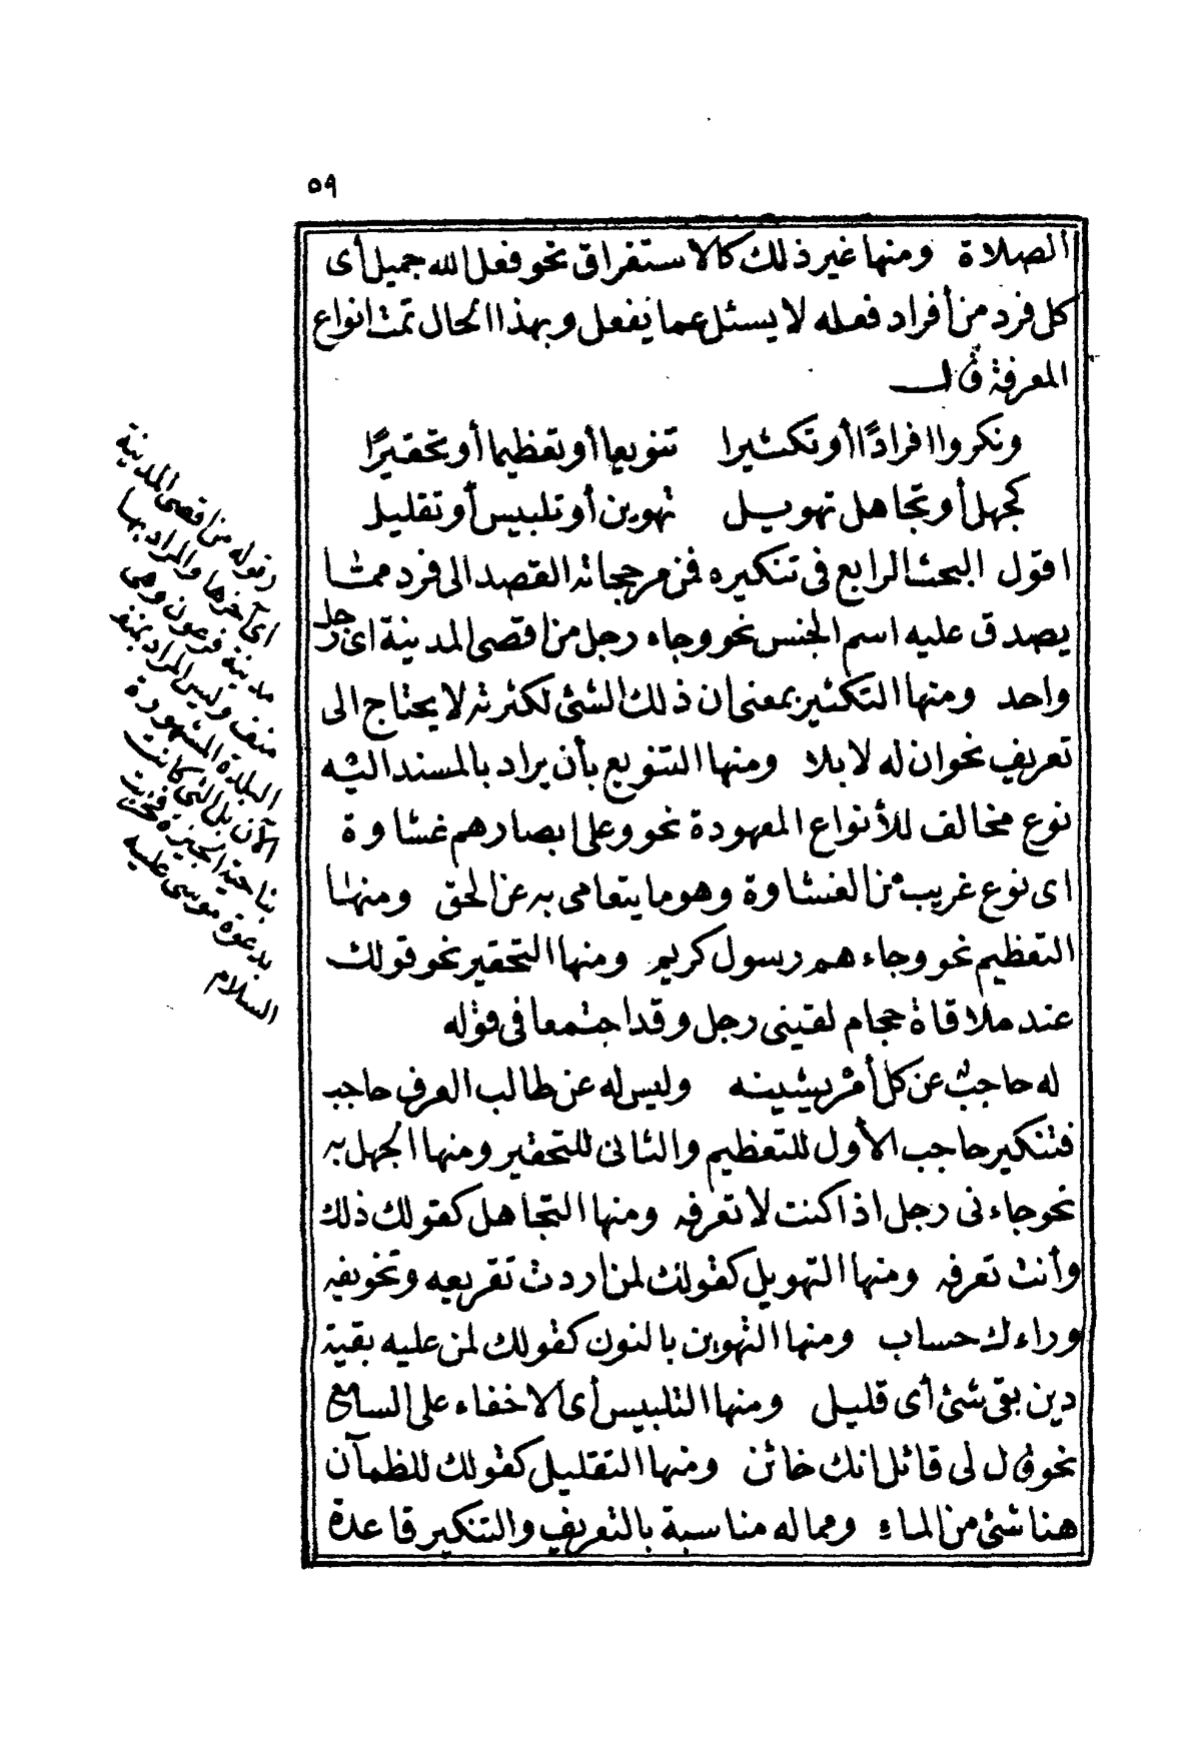 ٥٩
الصلاة ومنها غير ذلك كالاستغراق نحو فعل الله جميل أى
كل فرد من أفراد فعله لا يسئل عما يفعل وبهذا الحال تمت انواع
المعرفة قال
ونكروا افرادًا أو تكثيرا تنويعا أو تعظيما أو تحقيرًا
كجهل أو تجاهل تهويل تهوين أو تلبيس أو تقليل
اقول البحث الرابع فى تنكيره فمن مرجحاته القصد الى فرد مما
يصدق عليه اسم الجنس نحو وجاء رجل من اقصى المدينة اى رجل
واحد ومنها التكثير بمعنى ان ذلك الشئ لكثرته لا يحتاج الى
تعريف نحو ان له لابلا ومنها التنويع بأن يراد بالمسند اليه
نوع مخالف للأنواع المعهودة نحو وعلى ابصارهم غشاوة
اى نوع غريب من الغشاوة وهو ما يتعامى به عن الحق ومنها
التعظيم نحو وجاءهم رسول كريم ومنها التحقير نحو قولك
عند ملاقاة حجام لقينى رجل وقد اجتمعا فى قوله
له حاجبٌ عن كل أمْر يشينه وليس له عن طالب العرف حاجب
فتنكير حاجب الأول للتعظيم والثانى للتحقير ومنها الجهل به
نحو جاءنى رجل اذا كنت لا تعرفه ومنها التجاهل كقولك ذلك
وأنت تعرفه ومنها التهويل كقولك لمن اردت تقريعه وتخويفه
وراءك حساب ومنها التهوين بالنون كقولك لمن عليه بقية
دين بقى شئ أى قليل ومنها التلبيس أى الاخفاء على السامع
نحو قال لى قائل انك خائن ومنها التقليل كقولك للظمآن
هنا شئ من الماء ومما له مناسبة بالتعريف والتنكير قاعدة
(قوله من اقصى المدينة
اى آخرها والمراد بها
مدينة فرعون وهى
منف وليس المراد بمنف
البلدة المشهورة
الآن بل التى كانت
بناحية الجيزة فخربت
بدعوة موسى عليه
السلام